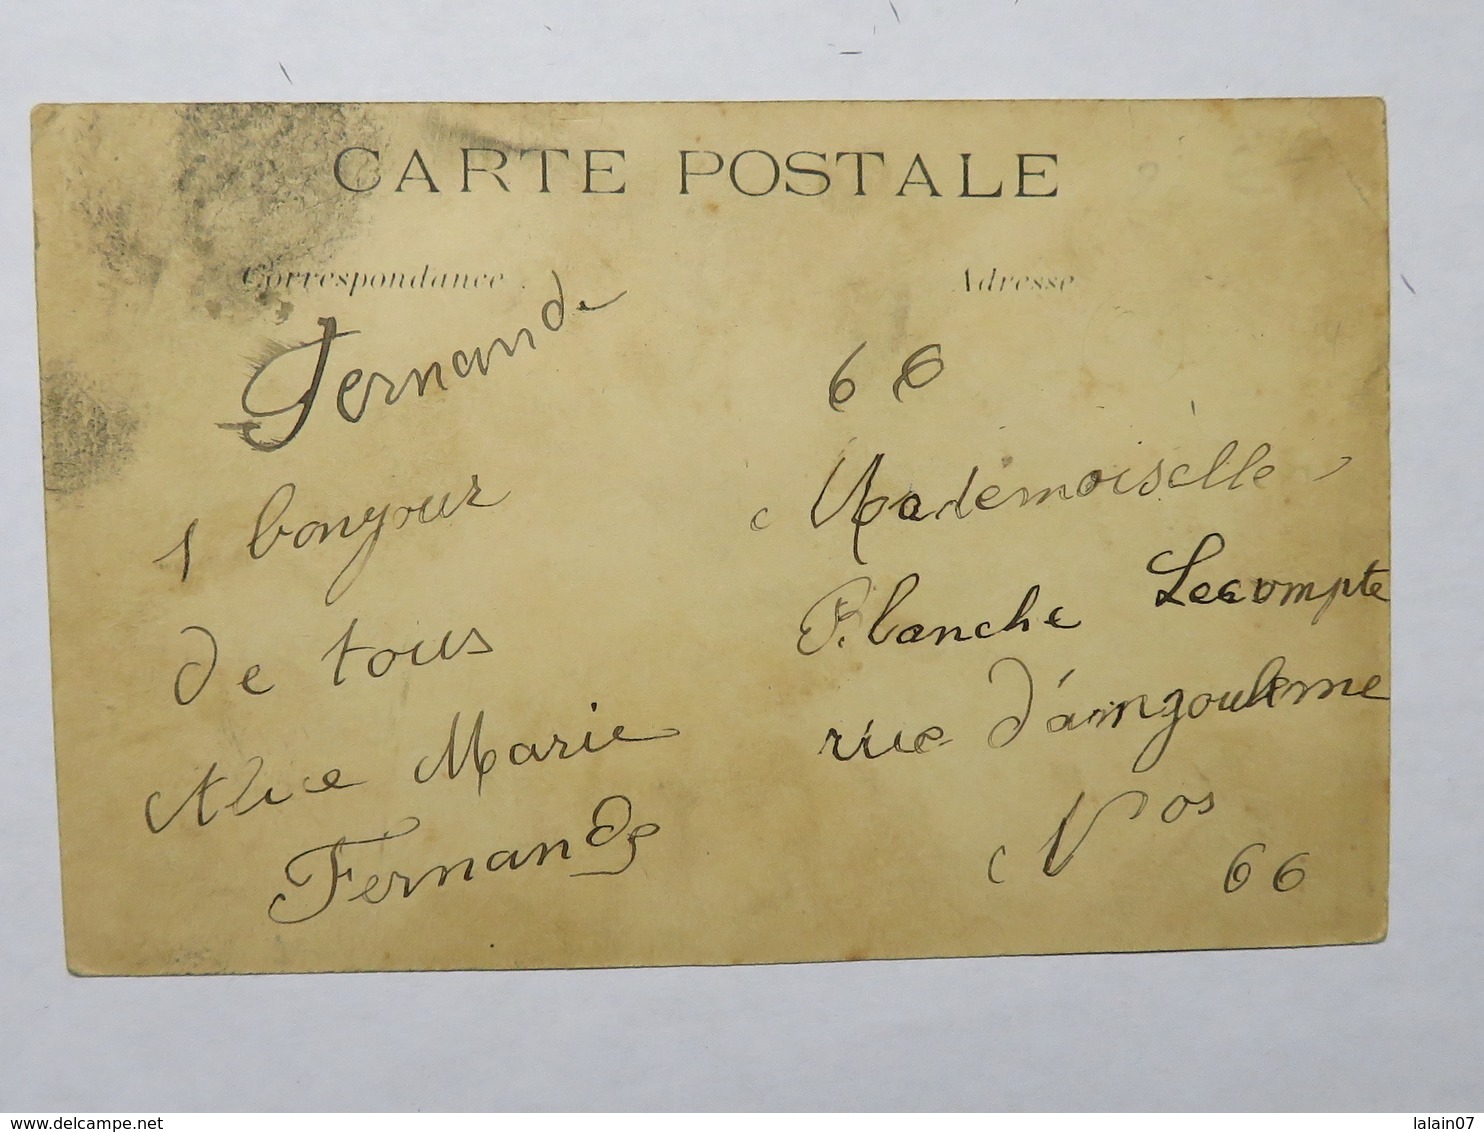 CARTE POSTALE
Correspondance
Fernande
1 bonjour
de tous
Alice Marie
Fernande
Adresse
66
Mademoiselle
Blanche Lecompte
rue d'angouleme
Nos
66
delcampe.net
lalain07